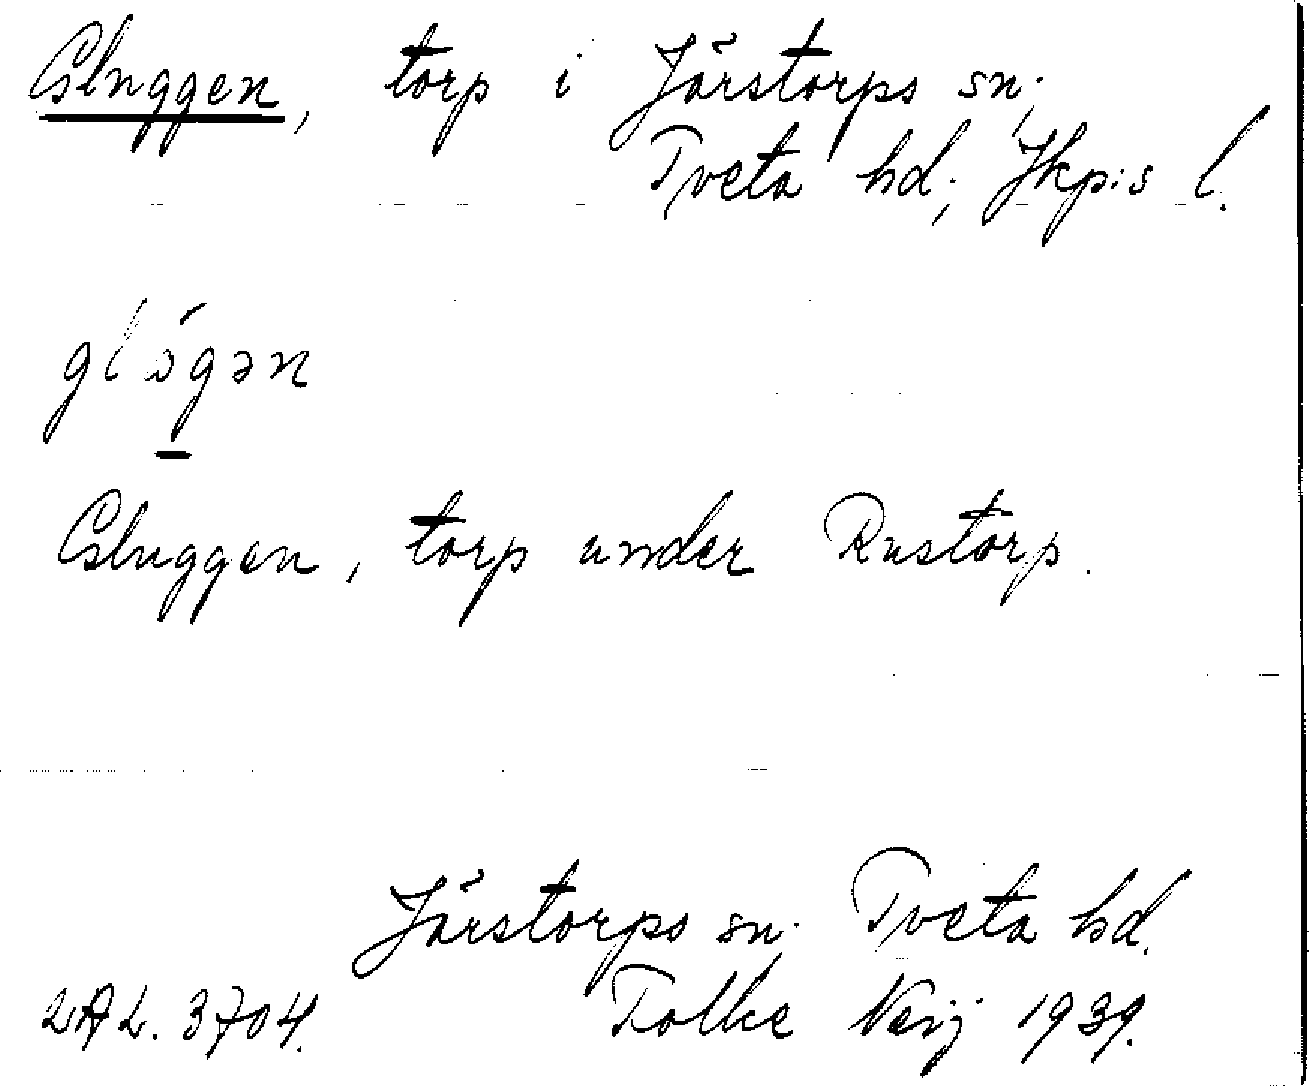 Gluggen, torp i Järstorps sn;
Tveta hd; Jkp:s l.
glógən
Gluggen, torp under Rustorp.
Järstorps sn. Tveta hd.
LAL. 3704. Folke Neij 1939.